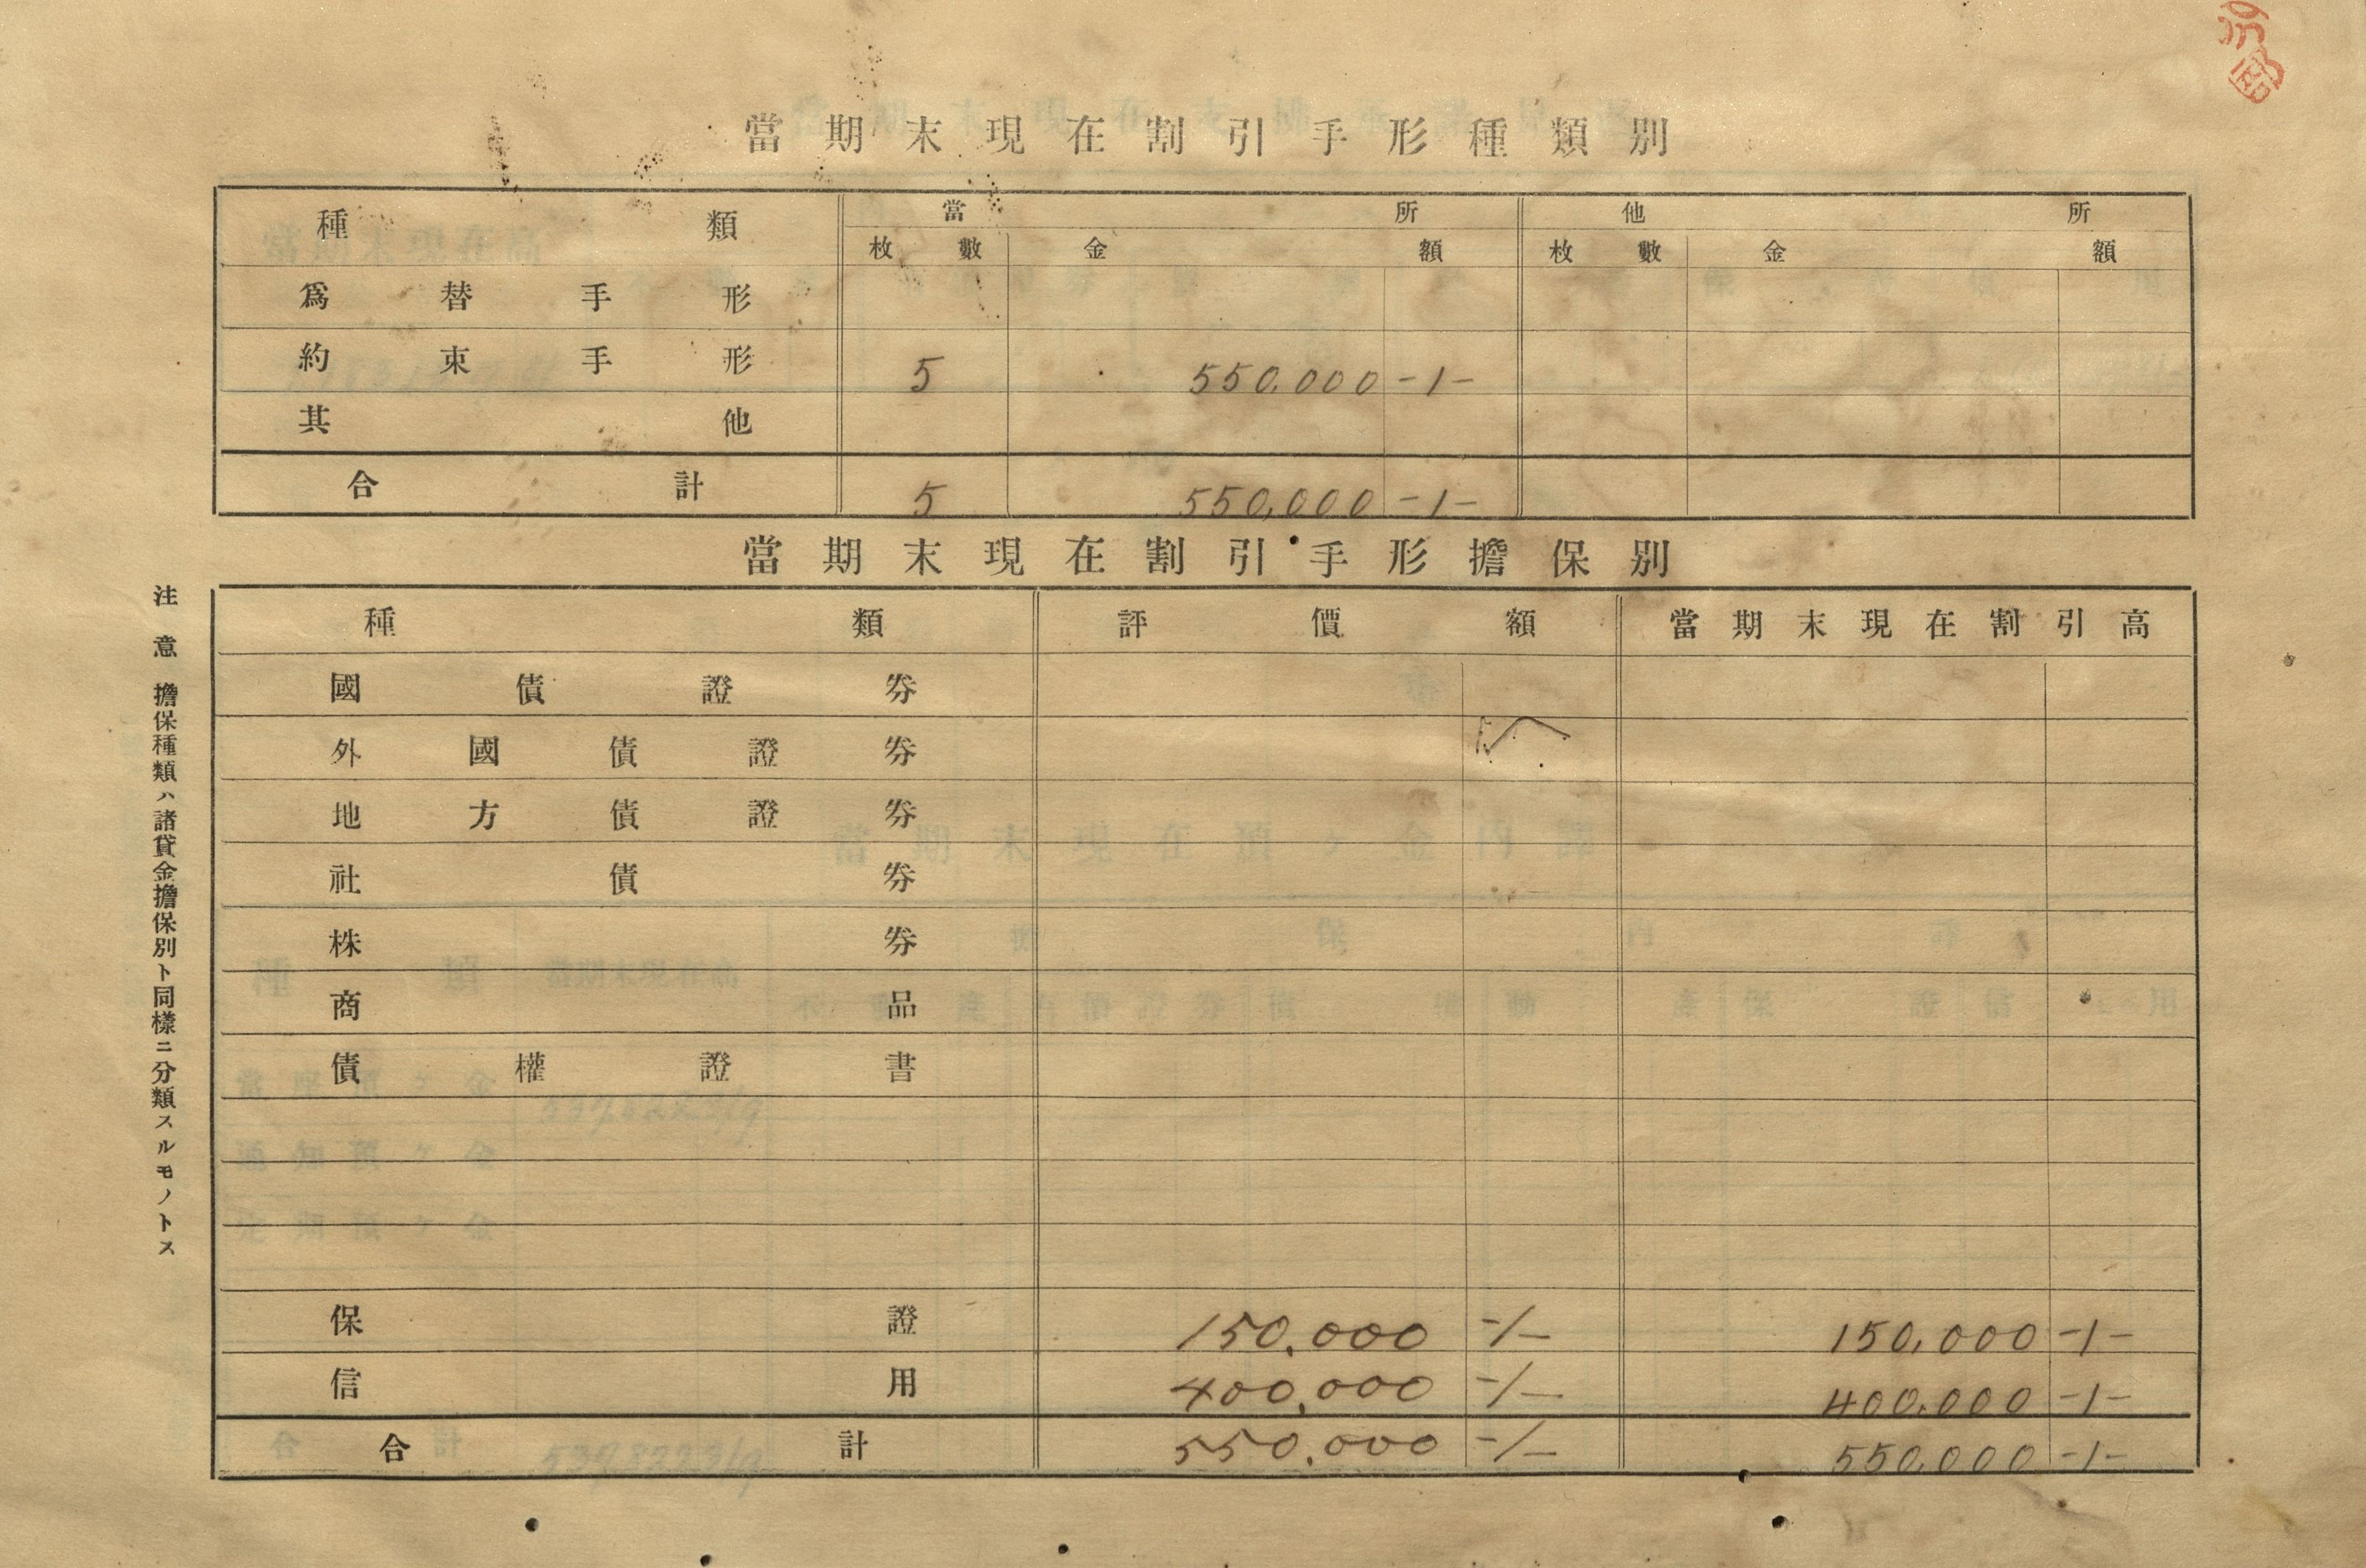 當期末現在割引手形種類別
種類 當所 他所
枚數 金額 枚數 金額
爲替手形
約束手形 5 550,000 -/-
其他
合計 5 550,000 -/-
當期末現在割引手形擔保別
種類 評價額 當期末現在割引高
國債證券
外國債證券
地方債證券
社債券
株券
商品
債權證書
保證 150,000 -/- 150,000 -/-
信用 400,000 -/- 400,000 -/-
合計 550,000 -/- 550,000 -/-
注意 擔保種類ハ諸貸金擔保別ト同樣ニ分類スルモノトス